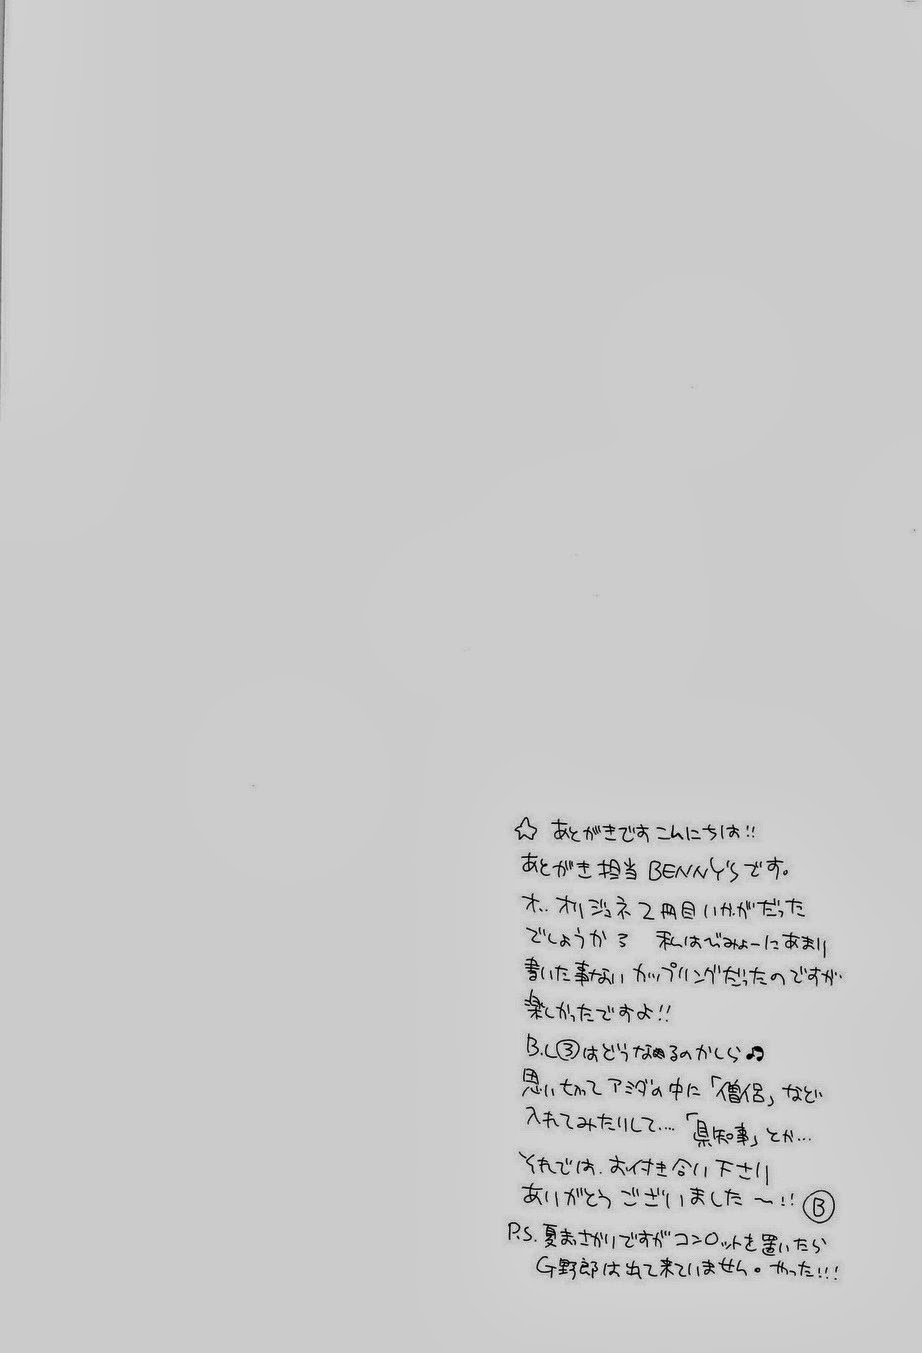 ☆ あとがきです こんにちは!!
あとがき担当 BENNY'Sです。
オ.. オリジュネ2冊目いかがだった
でしょうか? 私はびみょーにあまり
書いた事ない カップリングだったのですが
楽しかったですよ!!
B.L③はどうなるのかしら♫
思い切って アミダの中に「僧侶」など
入れてみたりして…「県知事」とか…
それでは、お付き合い下さり
ありがとう ございました 〜!! Ⓑ
P.S. 夏まっさかりですが コンロットを置いたら
G野郎は出て来ていません。やった!!!